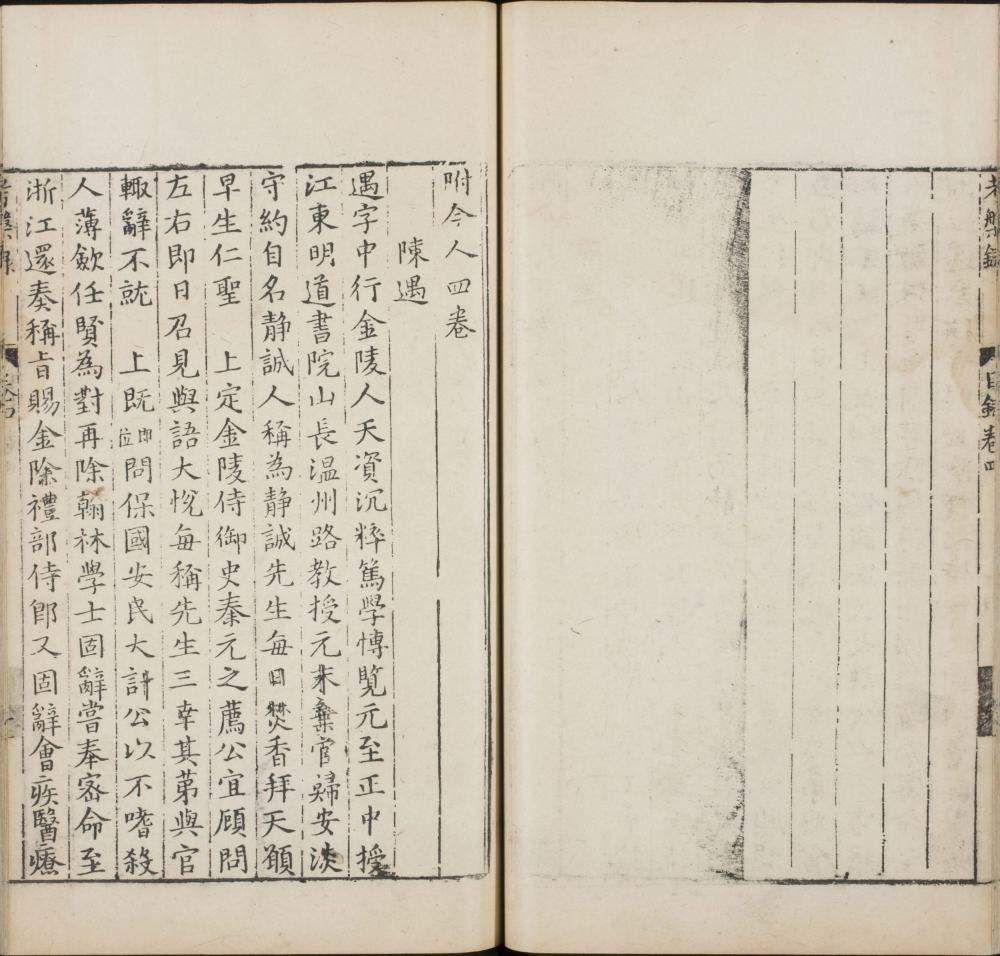 考槃錄
目錄卷四
附今人四卷
陳遇
遇字中行金陵人天資沉粹篤學愽覽元至正中授
江東明道書院山長温州路教授元末棄官歸安淡
守約自名静誠人稱為静誠先生每日焚香拜天願
早生仁聖　上定金陵侍御史秦元之薦公宜顧問
左右即日召見與語大悅每稱先生三幸其第與官
輙辭不就　上既即位問保國安民大計公以不嗜殺
人薄斂任賢為對再除翰林學士固辭嘗奉密命至
浙江還奏稱旨賜金除禮部侍郎又固辭會疾醫療